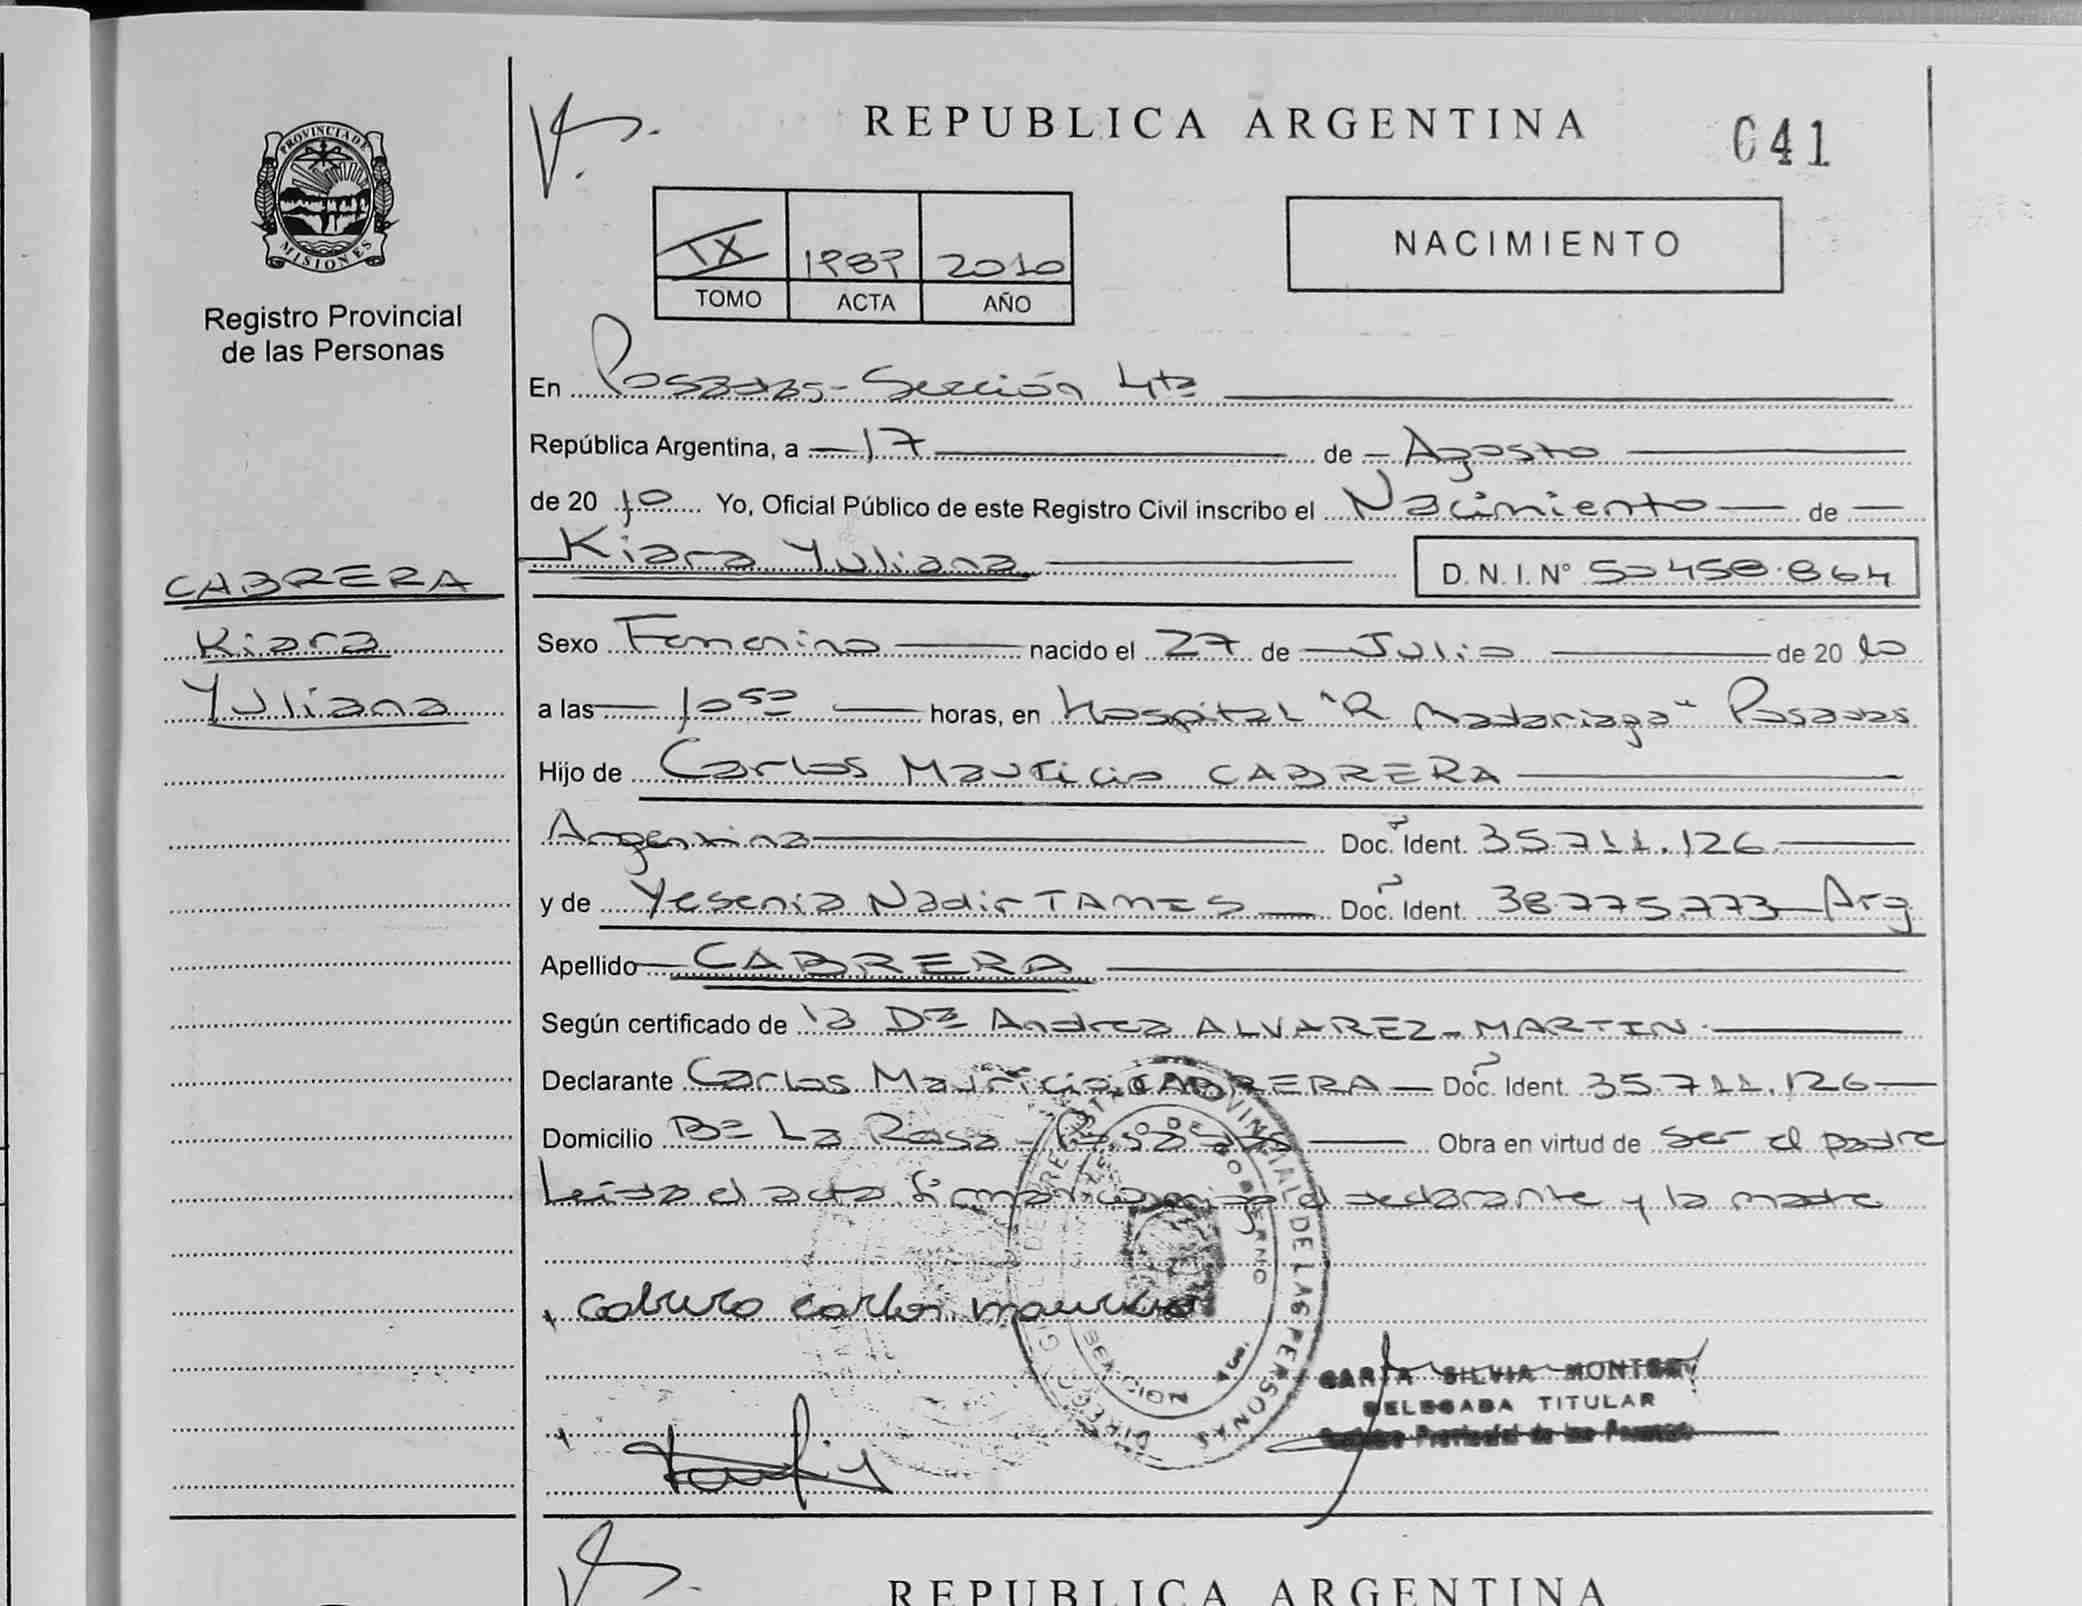 PROVINCIA DE
MISIONES
Registro Provincial
de las Personas
CABRERA
Kiara
Yuliana
REPUBLICA ARGENTINA
041
IX 1989 2010
TOMO ACTA AÑO
NACIMIENTO
En Posadas - Sección 4ta
República Argentina, a 17 de Agosto
de 2010 Yo, Oficial Público de este Registro Civil inscribo el Nacimiento de
Kiara Yuliana D.N.I. Nº 50.458.864
Sexo Femenino nacido el 27 de Julio de 2010
a las 10 50 horas, en Hospital "R Madariaga" Posadas
Hijo de Carlos Mauricio CABRERA
Argentina Doc. Ident. 35.711.126
y de Yesenia Nadir TAMES Doc. Ident. 38.775.773 Arg
Apellido CABRERA
Según certificado de la Dra Andrea ALVAREZ - MARTIN
Declarante Carlos Mauricio CABRERA Doc. Ident. 35.711.126
Domicilio Bº La Rosa - Posadas Obra en virtud de ser el padre
Leída el acta firman conmigo el declarante y la madre
cabrera carlos mauricio
SILVIA
DELEGADA TITULAR
Registro Provincial de las Personas
REPUBLICA ARGENTINA